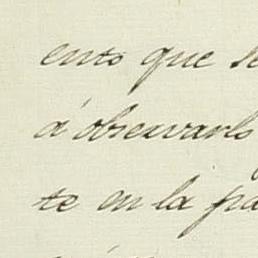 ento que se
á observarlo
te en la pa